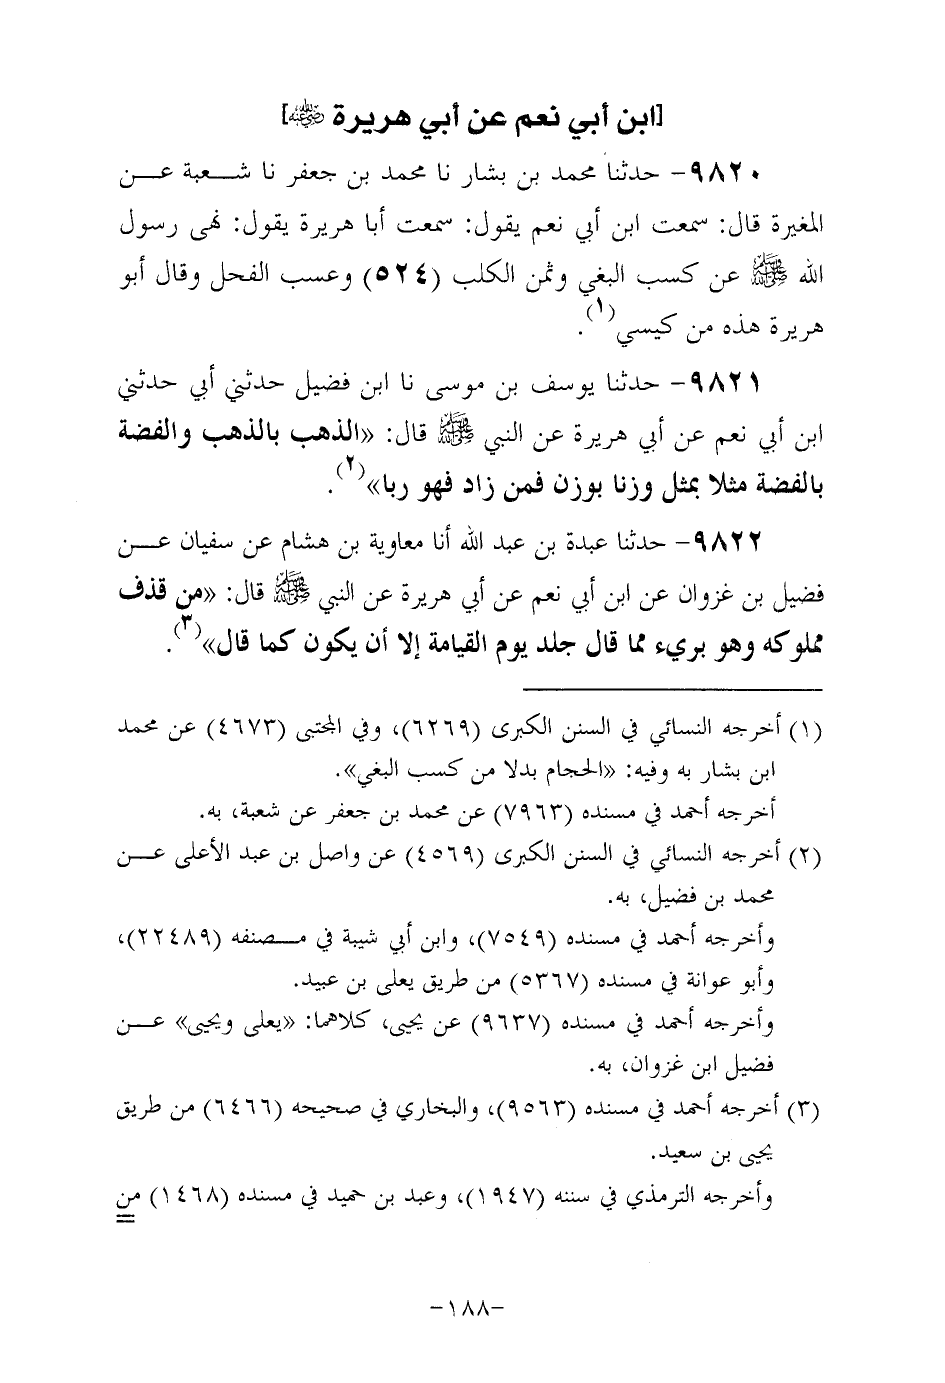 [ابن أبي نعم عن أبي هريرة رضي الله عنه]
٩٨٢٠- حدثنا محمد بن بشار نا محمد بن جعفر نا شعبة عن
المغيرة قال: سمعت ابن أبي نعم يقول: سمعت أبا هريرة يقول: نهى رسول
الله ﷺ عن كسب البغي وثمن الكلب (٥٢٤) وعسب الفحل وقال أبو
هريرة هذه من كيسي(١).
٩٨٢١- حدثنا يوسف بن موسى نا ابن فضيل حدثني أبي حدثني
ابن أبي نعم عن أبي هريرة عن النبي ﷺ قال: «الذهب بالذهب والفضة
بالفضة مثلا بمثل وزنا بوزن فمن زاد فهو ربا»(٢).
٩٨٢٢- حدثنا عبدة بن عبد الله أنا معاوية بن هشام عن سفيان عن
فضيل بن غزوان عن ابن أبي نعم عن أبي هريرة عن النبي ﷺ قال: «من قذف
مملوكه وهو بريء مما قال جلد يوم القيامة إلا أن يكون كما قال»(٣).
(١) أخرجه النسائي في السنن الكبرى (٦٢٦٩)، وفي المجتبى (٤٦٧٣) عن محمد
ابن بشار به وفيه: «الحجام بدلا من كسب البغي».
أخرجه أحمد في مسنده (٧٩٦٣) عن محمد بن جعفر عن شعبة، به.
(٢) أخرجه النسائي في السنن الكبرى (٤٥٦٩) عن واصل بن عبد الأعلى عن
محمد بن فضيل، به.
وأخرجه أحمد في مسنده (٧٥٤٩)، وابن أبي شيبة في مصنفه (٢٢٤٨٩)،
وأبو عوانة في مسنده (٥٣٦٧) من طريق يعلى بن عبيد.
وأخرجه أحمد في مسنده (٩٦٣٧) عن يحيى، كلاهما: «يعلى ويحيى» عن
فضيل ابن غزوان، به.
(٣) أخرجه أحمد في مسنده (٩٥٦٣)، والبخاري في صحيحه (٦٤٦٦) من طريق
يحيى بن سعيد.
وأخرجه الترمذي في سننه (١٩٤٧)، وعبد بن حميد في مسنده (١٤٦٨) من
=
-١٨٨-